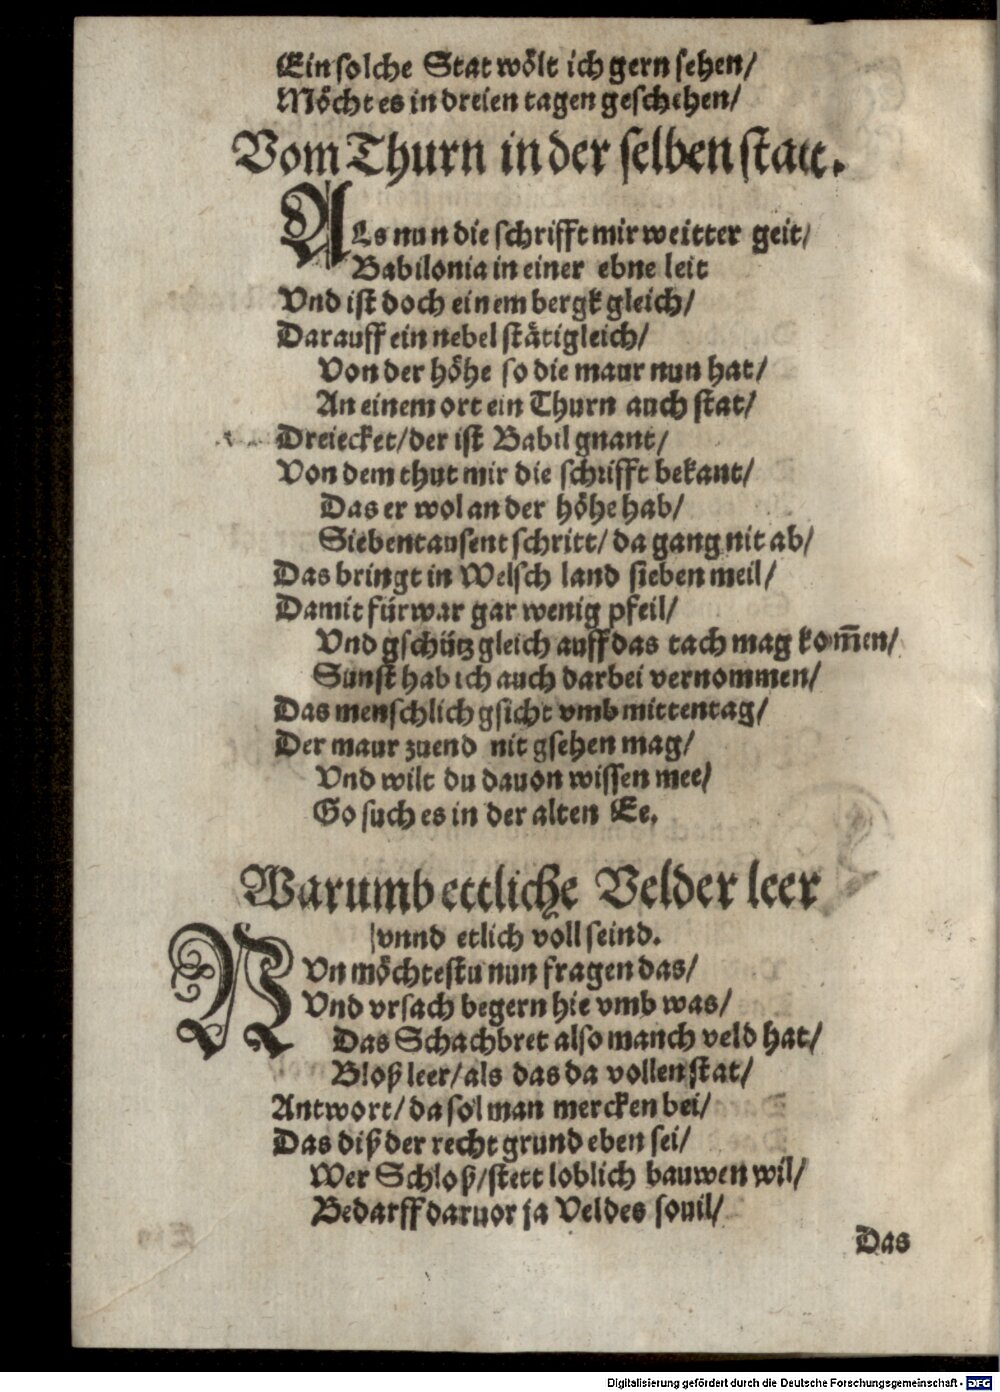 Ein solche Stat wölt ich gern sehen/
Möcht es in dreien tagen geschehen/
Vom Thurn in der selben statt.
ALs nun die schrifft mir weitter geit/
Babilonia in einer ebne leit
Vnd ist doch einem bergk gleich/
Darauff ein nebel stätigleich/
Von der höhe so die maur nun hat/
An einem ort ein Thurn auch stat/
Dreiecket/ der ist Babil gnant/
Von dem thut mir die schrifft bekant/
Das er wol an der höhe hab/
Siebentausent schritt/ da gang nit ab/
Das bringt in Welsch land sieben meil/
Damit fürwar gar wenig pfeil/
Vnd gschütz gleich auff das tach mag kom̄en/
Sunst hab ich auch darbei vernommen/
Das menschlich gsicht vmb mittentag/
Der maur zuend nit gsehen mag/
Vnd wilt du dauon wissen mee/
So such es in der alten Ee.
Warumb ettliche Velder leer
vnnd etlich voll seind.
NVn möchtestu nun fragen das/
Vnd vrsach begern hie vmb was/
Das Schachbret also manch veld hat/
Bloß leer/ als das da vollen stat/
Antwort/ da sol man mercken bei/
Das diß der recht grund eben sei/
Wer Schloß/ stett loblich bauwen wil/
Bedarff daruor ja Veldes souil/
Das
Digitalisierung gefördert durch die Deutsche Forschungsgemeinschaft - DFG